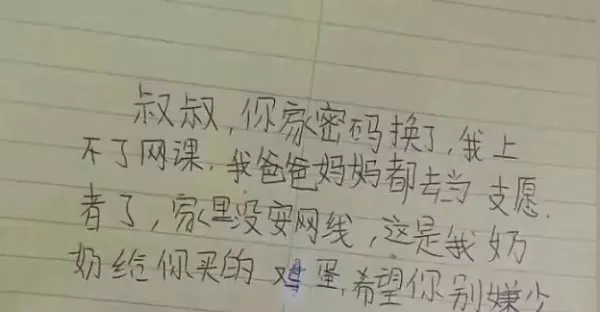 叔叔,你家密码换了,我上
不了网课.我爸爸妈妈都去当 支愿.
者了,家里没安网线,这是我奶
奶给你买的 鸡蛋.希望你别嫌少